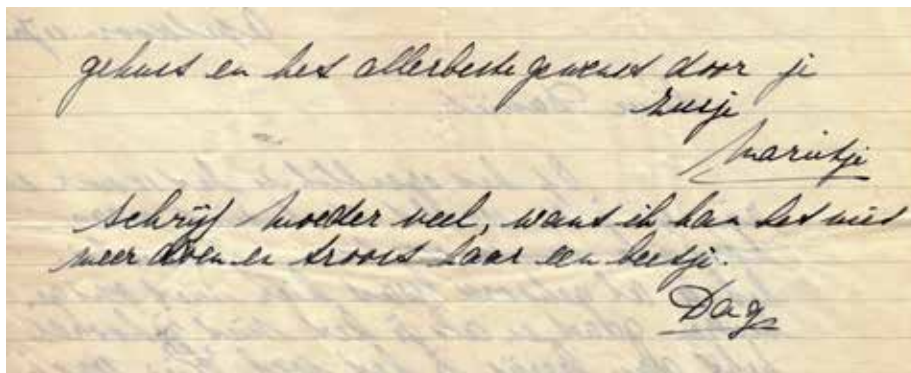 gekust en het allerbeste gewenst door je
zusje
Marietje
Schrijf Moeder veel, want ik kan het niet
meer doen en troost haar een beetje.
Dag